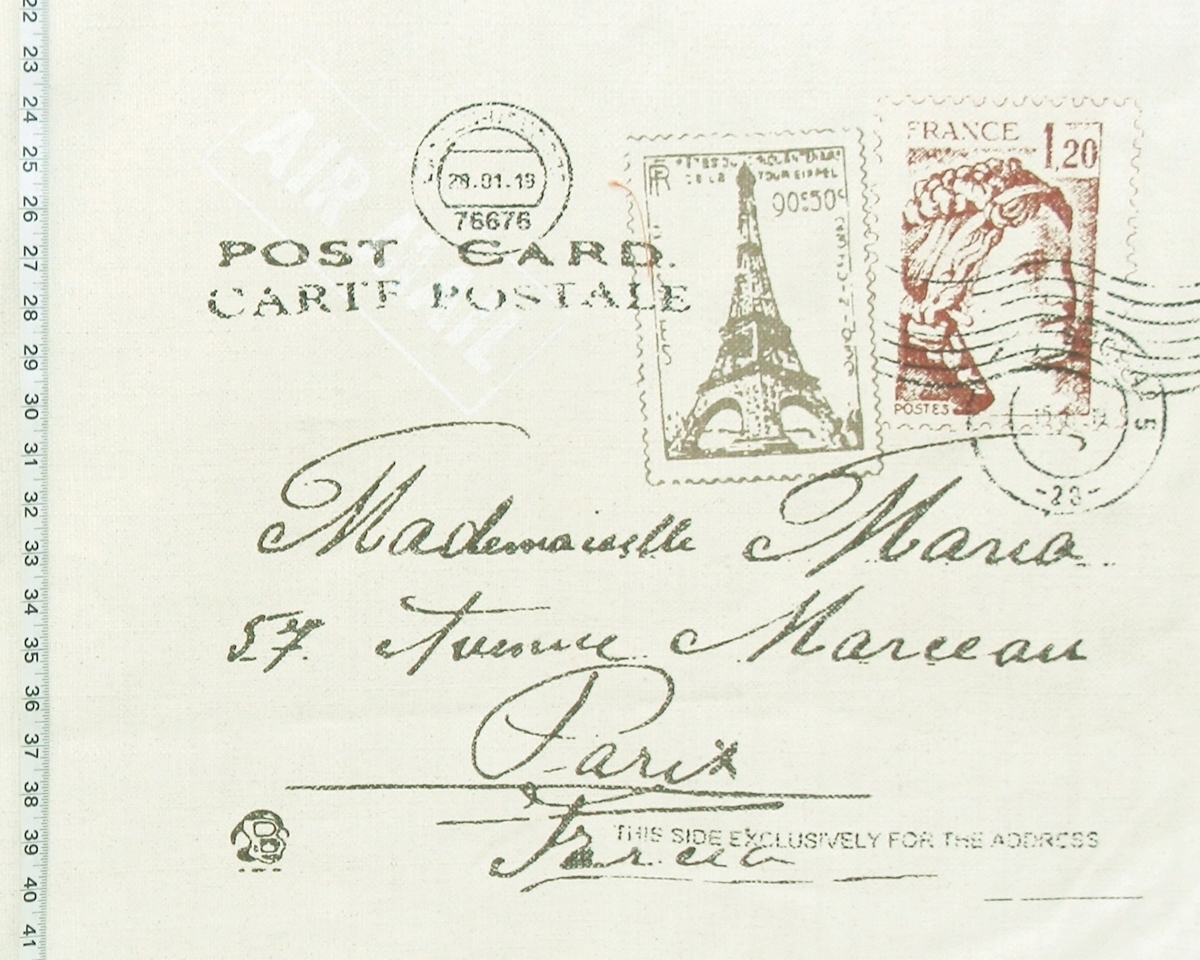 22
23
24
25
26
27
28
29
30
31
32
33
34
35
36
37
38
39
40
41
AIR MAIL
28.01.19
76676
POST CARD.
CARTE POSTALE
RF
DE LA TOUR EIFFEL
90c 50c
FRANCE 1,20
POSTES
5
-23-
Mademoiselle Maria
57 Avenue Marceau
Paris
THIS SIDE EXCLUSIVELY FOR THE ADDRESS